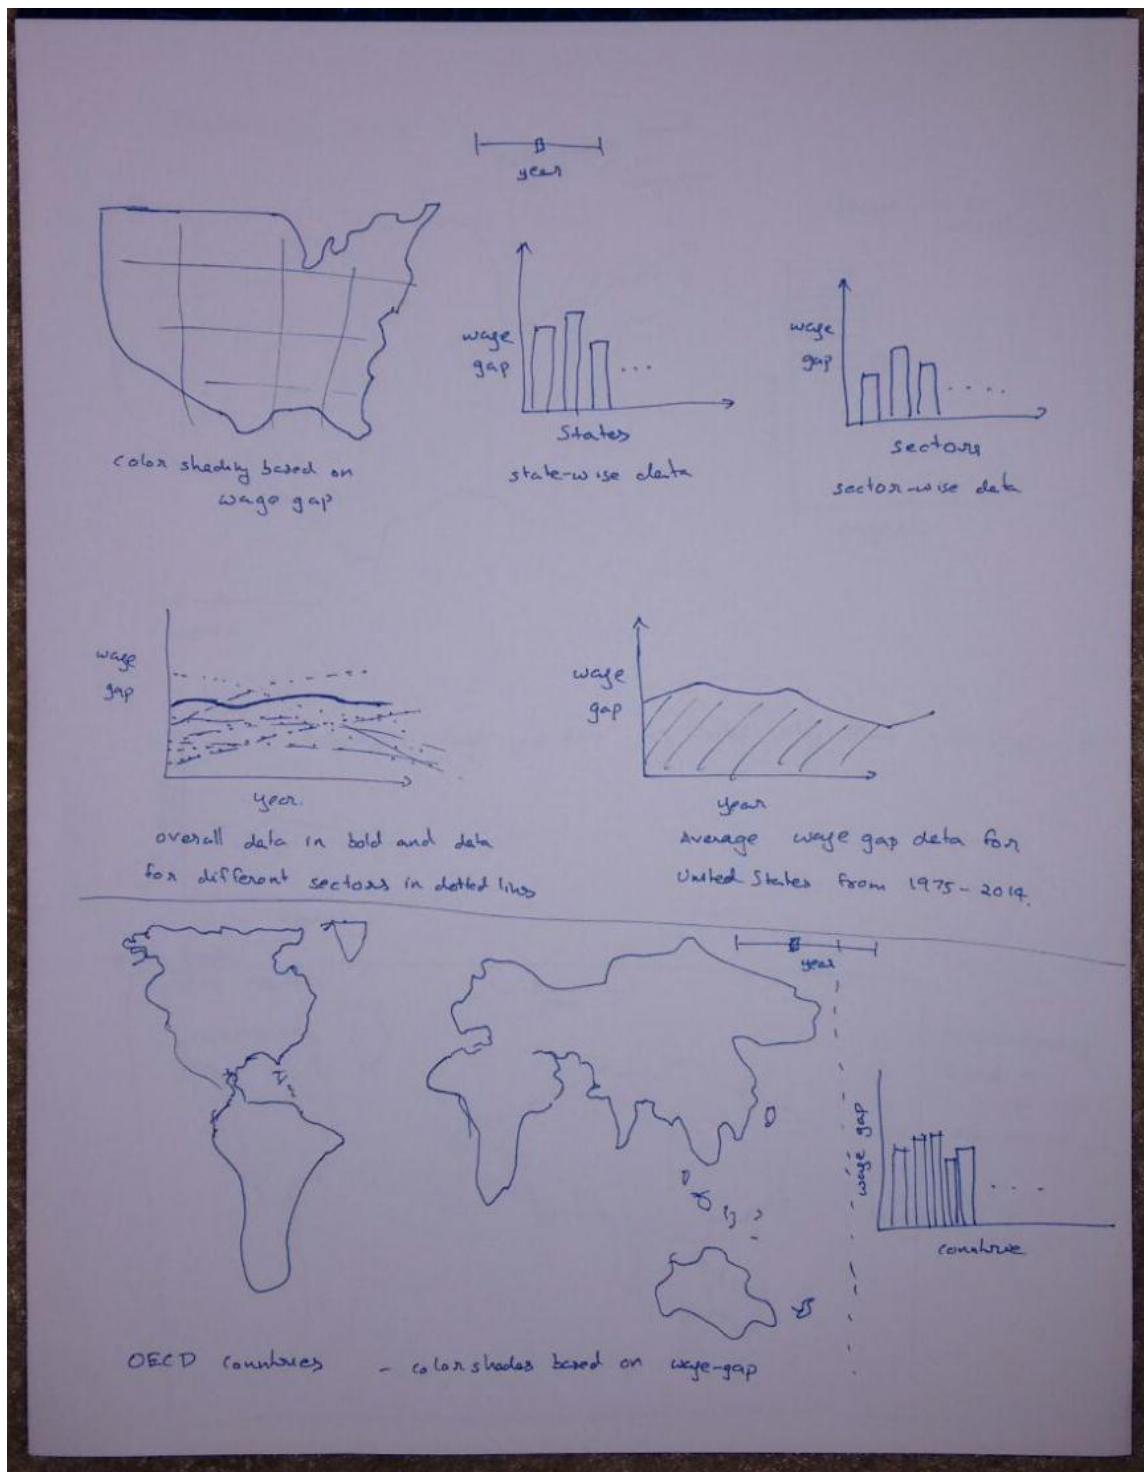 year
color shading based on
wage gap
wage
gap
States
state-wise data
wage
gap
sectors
sector-wise data
wage
gap
year.
overall data in bold and data
for different sectors in dotted lines
wage
gap
year
Average wage gap data for
United States from 1975-2014.
year
wage gap
countrie
OECD countries - color shades based on wage-gap